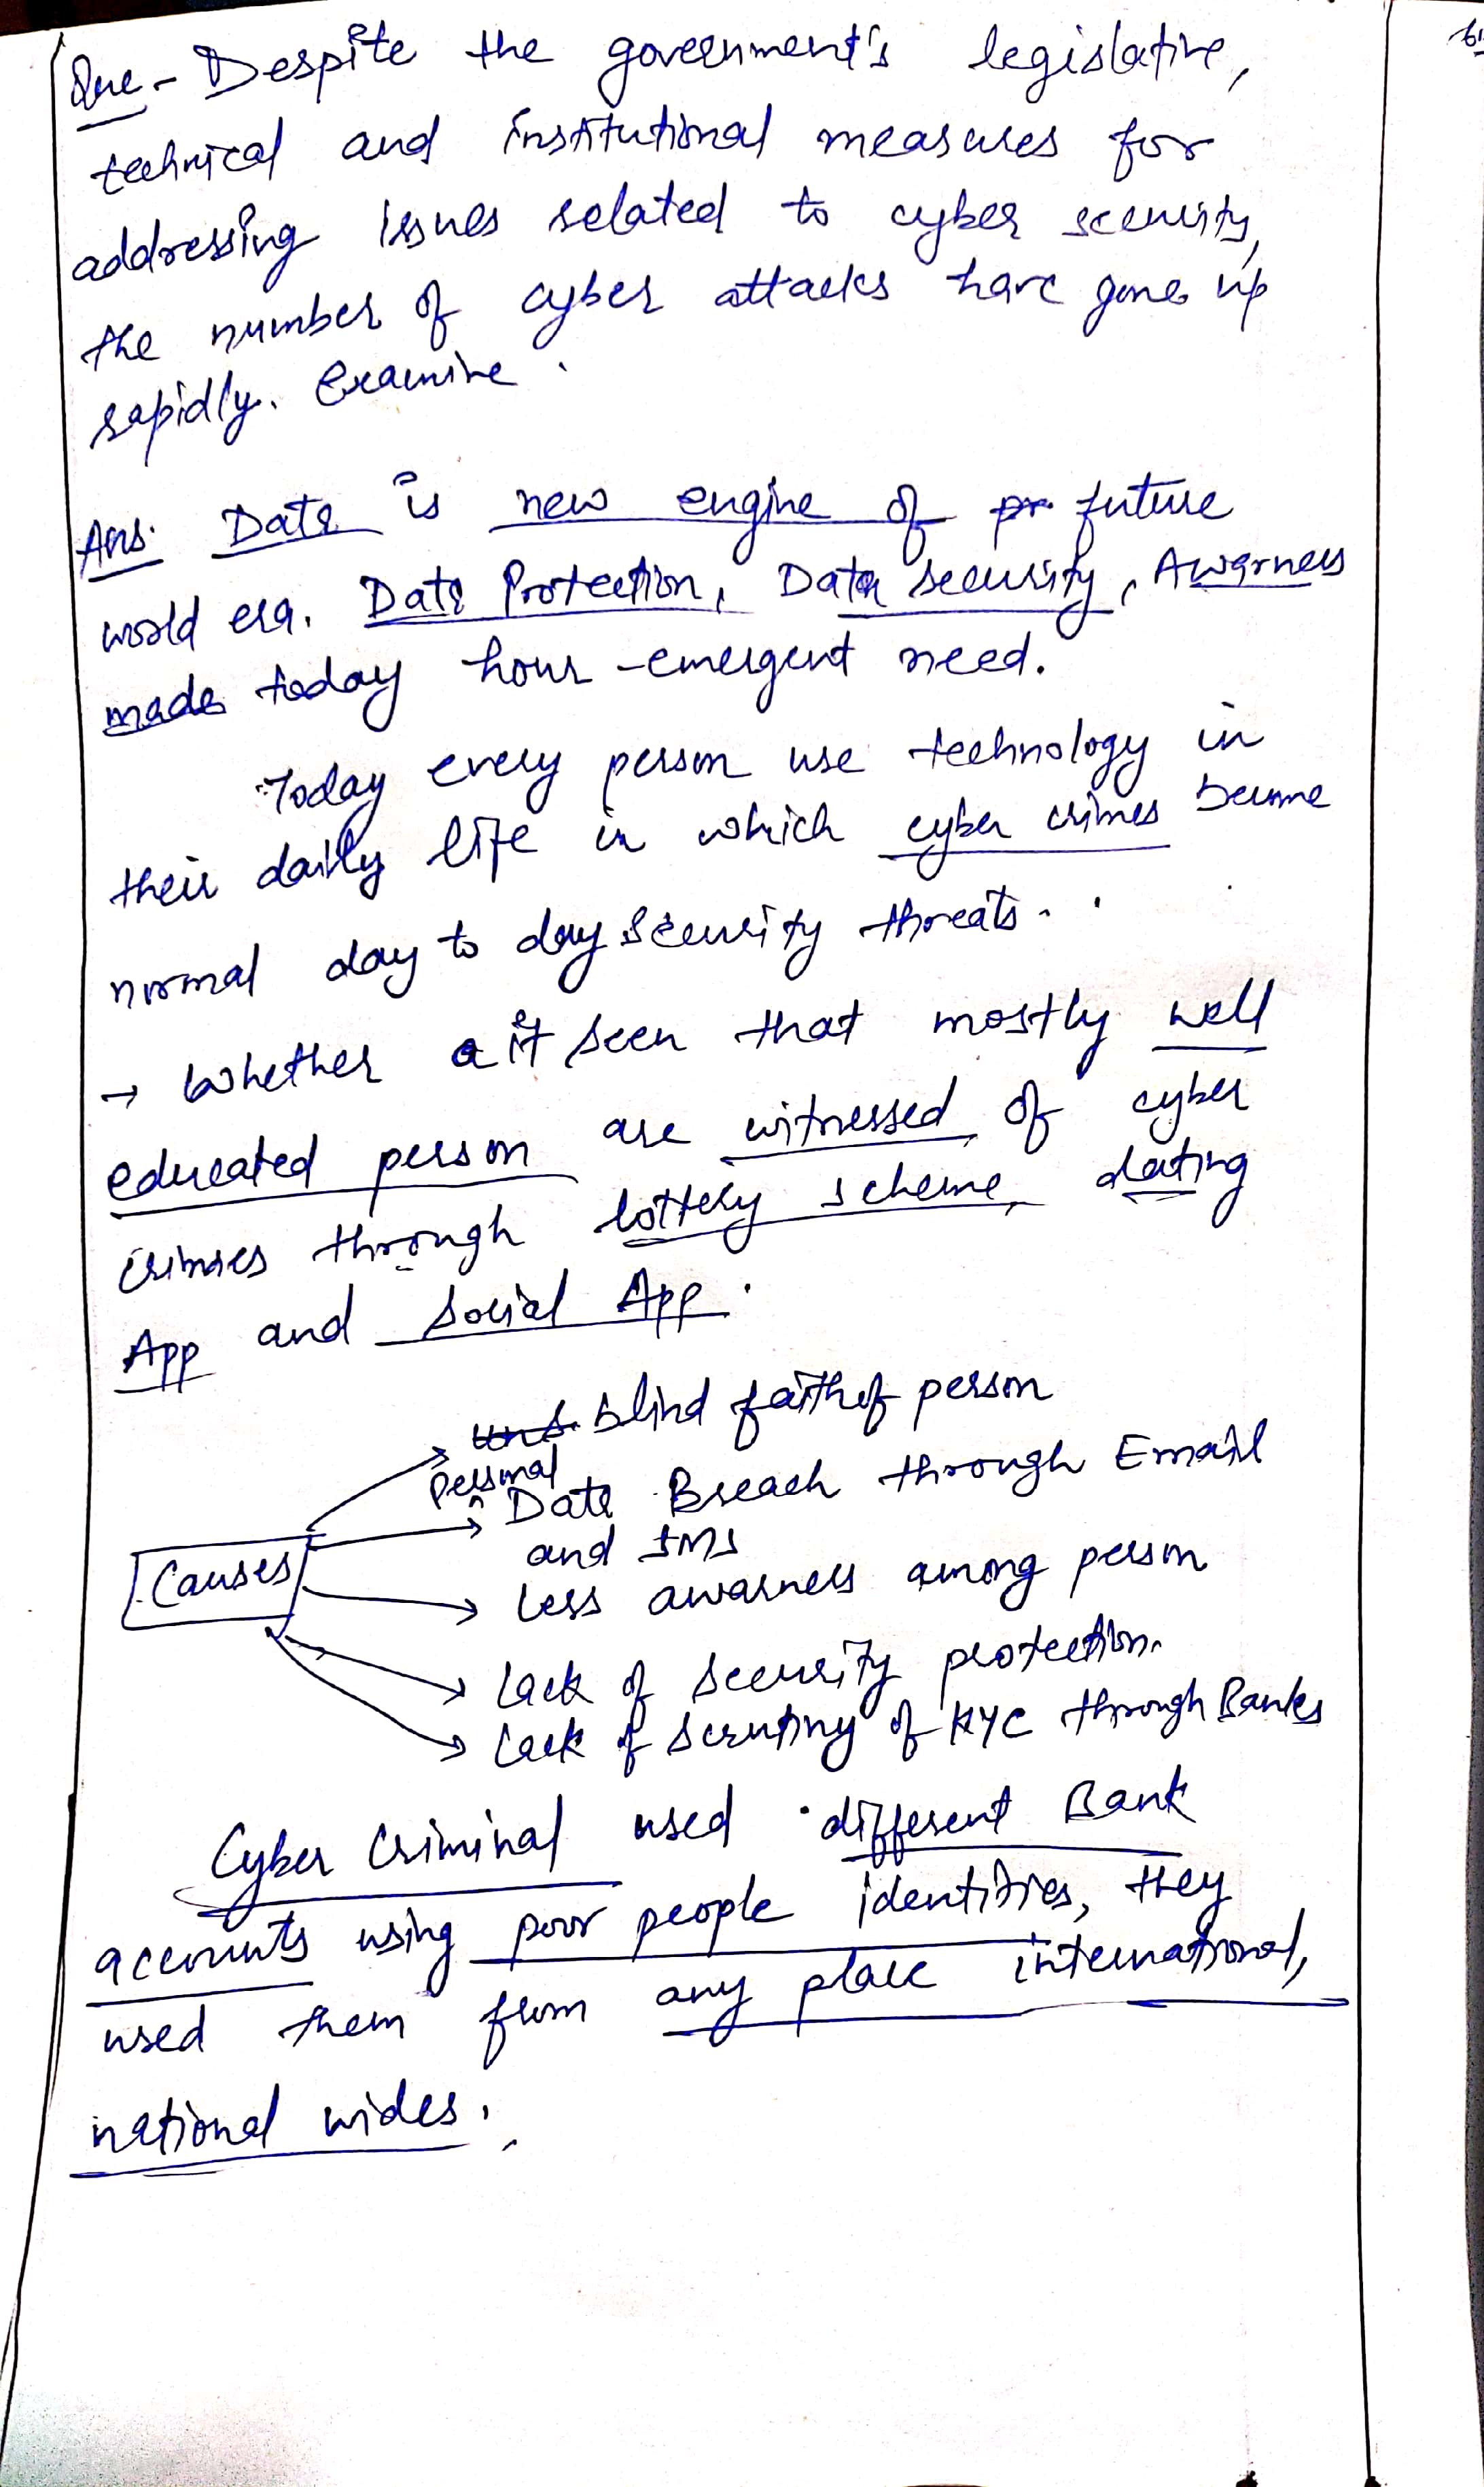 Que - Despite the government's legislative,
technical and institutional measures for
addressing issues related to cyber security,
the number of cyber attacks have gone up
rapidly. Examine.
Ans. Data is new engine of future
world era. Data Protection, Data security, Awarness
made today hour -emergent need.
Today every person use technology in
their daily life in which cyber crimes become
normal day to day security threats.
→ Whether it seen that mostly well
educated person are witnessed of cyber
crimes through lottery scheme, dating
App and Social App.
blind faith of person
personal Data Breach through Email
and SMS
Causes
less awarness among person
Lack of security protection.
Lack of scrutiny of KYC through Banks
Cyber Criminal used different Bank
accounts using poor people identities, they
used them from any place international,
national wides.